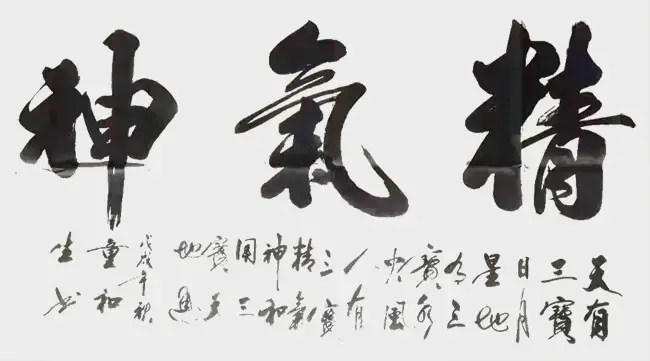 精氣神
天有
三寶
日月
星地
有三
寶水
火風
人有
三寶
精氣
神
三
寶天
地通
戊戌年秋
重和
生书